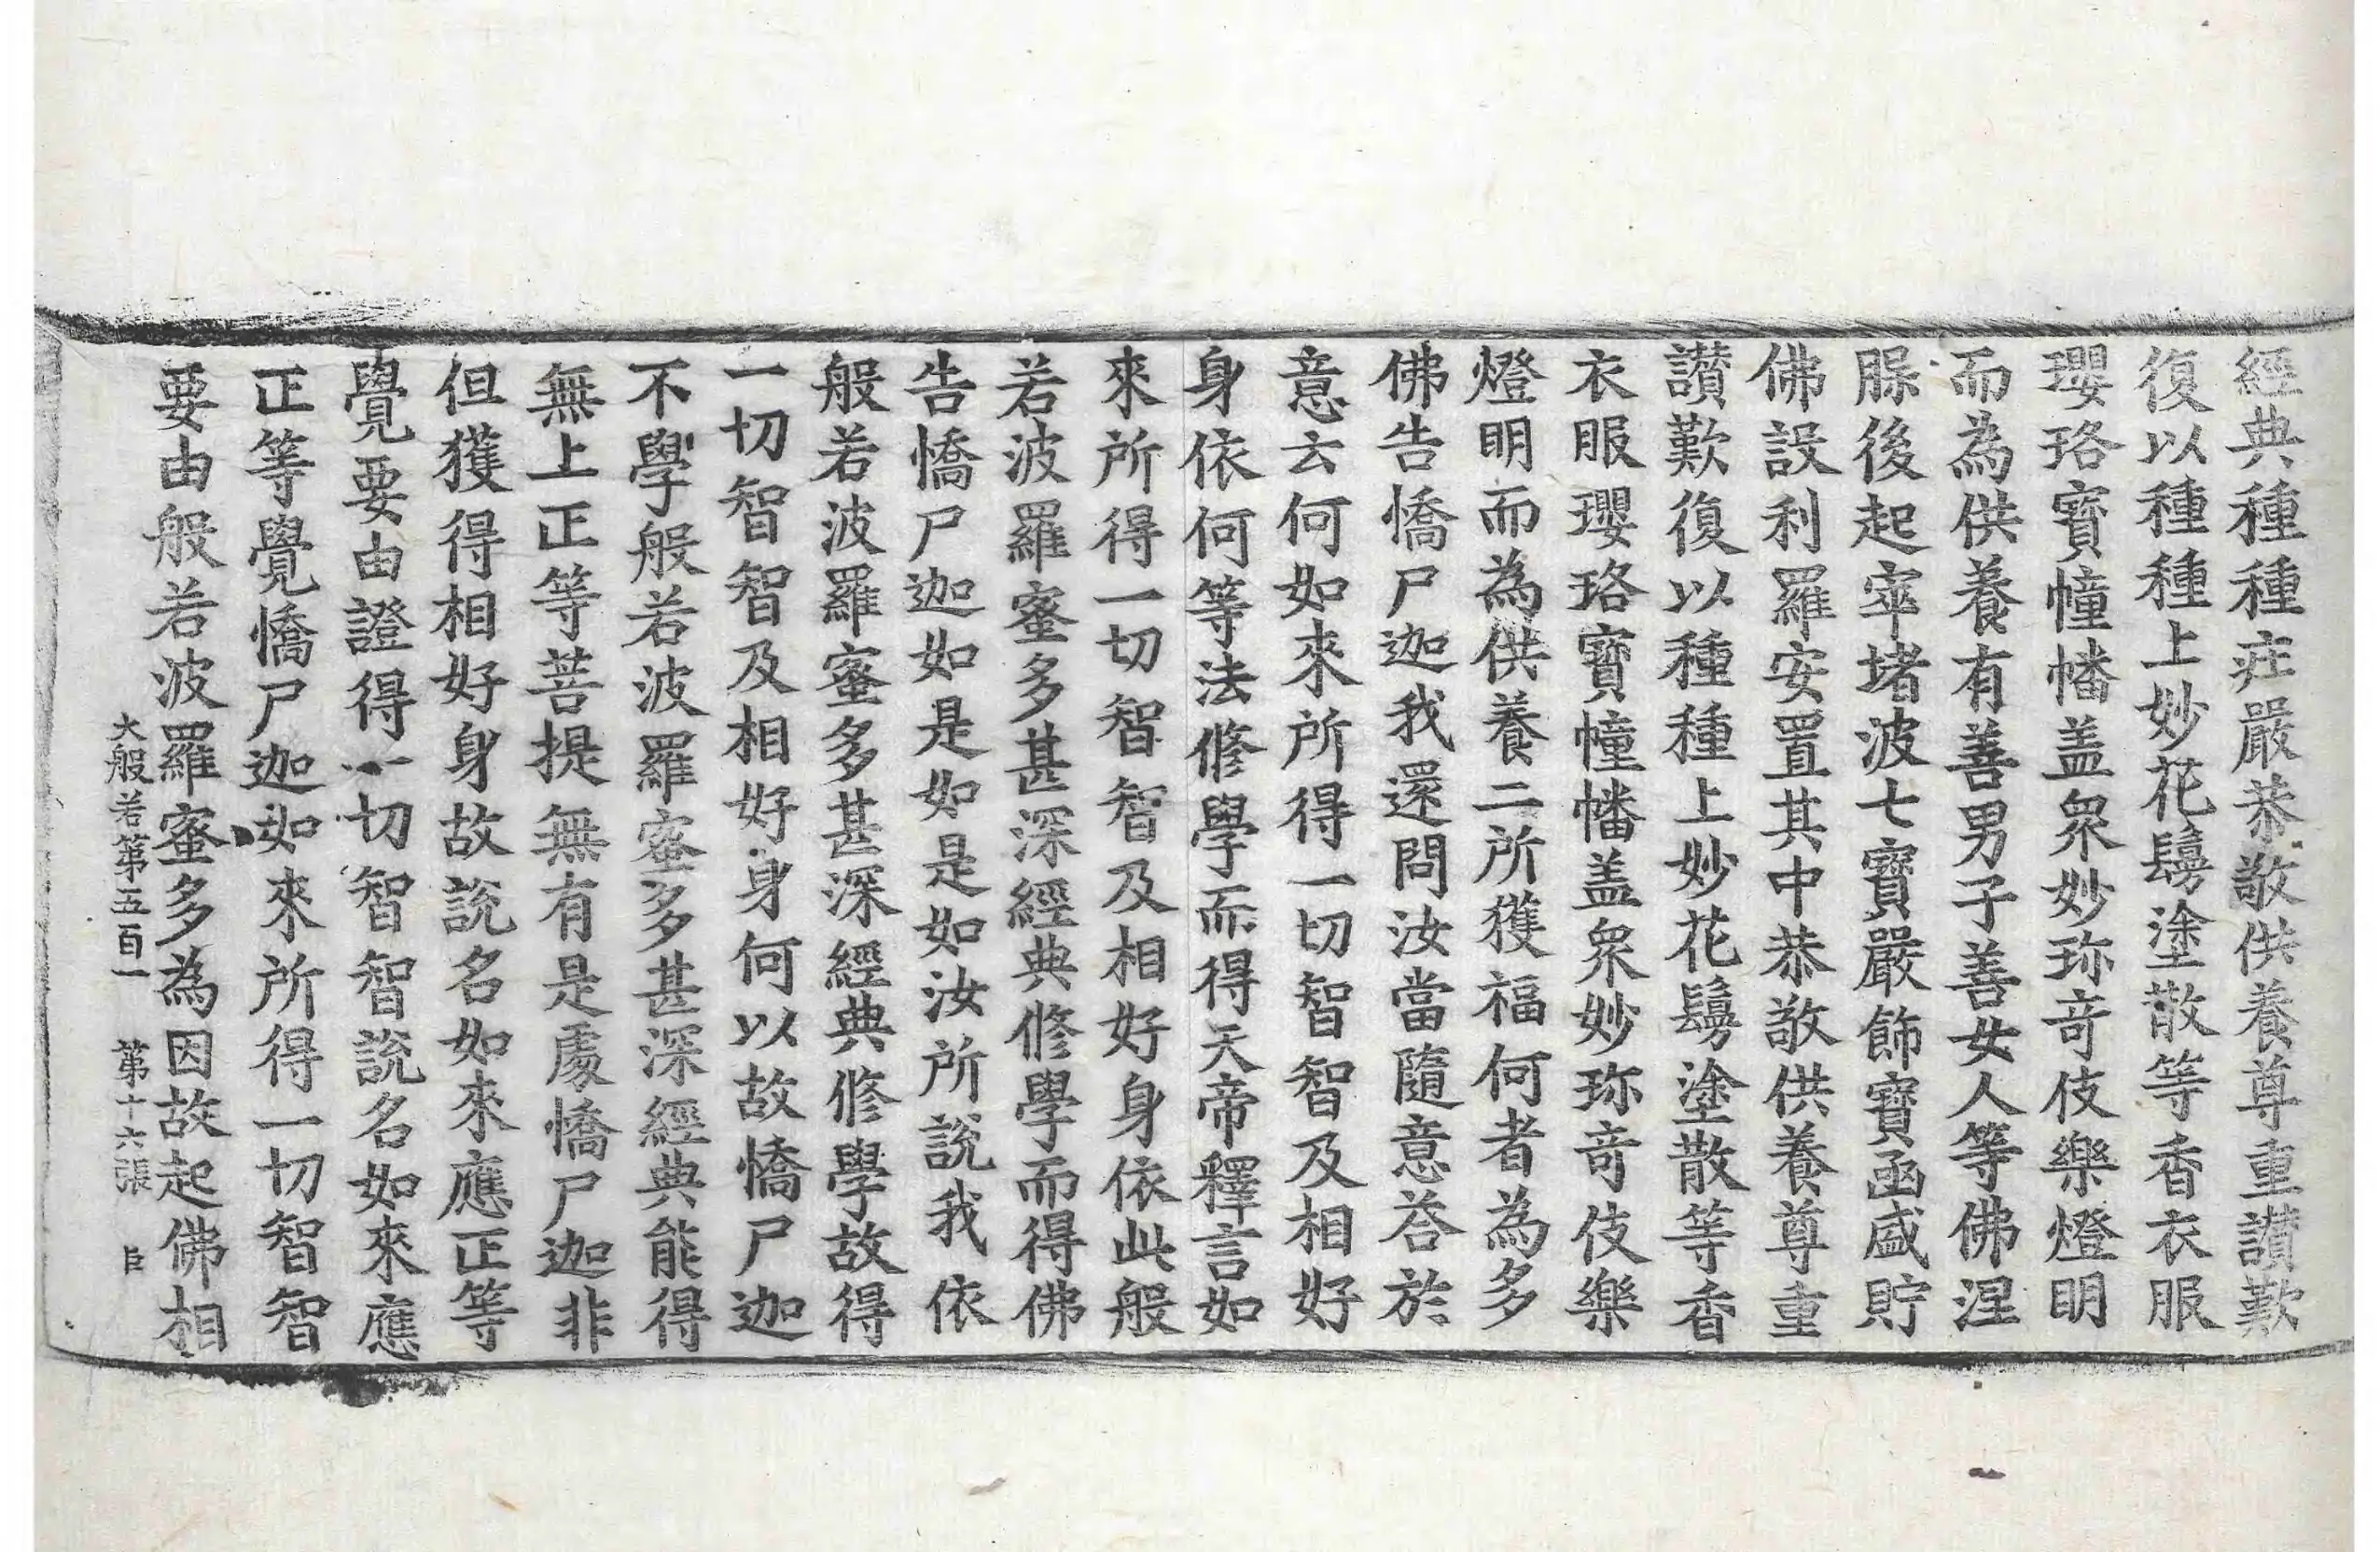 經典種種庄嚴恭敬供養尊重讃歎
復以種種上妙花鬘塗散等香衣服
瓔珞寶幢幡盖衆妙珎竒伎樂燈明
而為供養有善男子善女人等佛涅
槃後起窣堵波七寶嚴飾寶函盛貯
佛設利羅安置其中恭敬供養尊重
讃歎復以種種上妙花鬘塗散等香
衣服瓔珞寶幢幡盖衆妙珎竒伎樂
燈明而為供養二所獲福何者為多
佛告憍尸迦我還問汝當隨意荅於
意云何如來所得一切智智及相好
身依何等法修學而得天帝釋言如
來所得一切智智及相好身依此般
若波羅蜜多甚深經典修學而得佛
告憍尸迦如是如是如汝所說我依
般若波羅蜜多甚深經典修學故得
一切智智及相好身何以故憍尸迦
不學般若波羅蜜多甚深經典能得
無上正等菩提無有是處憍尸迦非
但獲得相好身故說名如來應正等
覺要由證得一切智智說名如來應
正等覺憍尸迦如來所得一切智智
要由般若波羅蜜多為因故起佛相
大般若第五百一 第十六張 臣